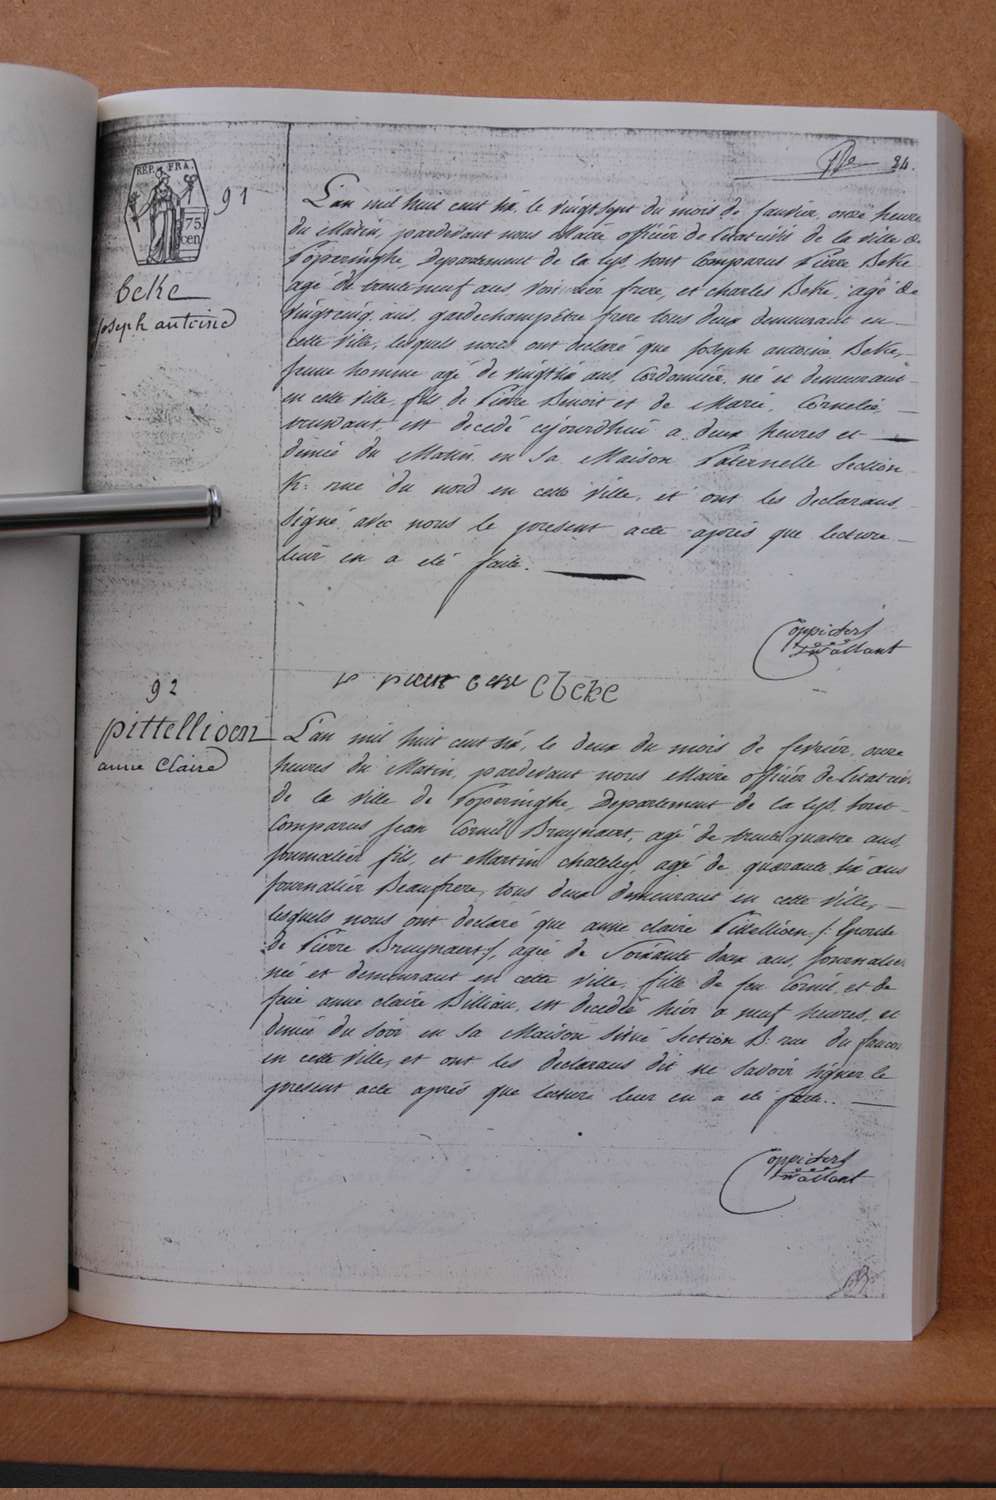 34.
REP. FRA.
75
cen
91
beke
joseph antoine
L'an mil huit cent six, le vingtsept du mois de janvier, onze heures
du Matin, pardevant nous Maire officier de l'etat civil de la ville de
Poperinghe, Departement de la Lys, sont Comparus Pierre Beke
agé de trente neuf ans, frere, et charles Beke, agé de
vingtcinq ans, gardechampêtre frere tous deux demeurant en
cette Ville, lesquels nous ont declaré que Joseph antoine Beke,
jeune homme agé de vingtsix ans, Cordonnier, né et demeurant
en cette ville, fils de Pierre Benoit et de Marie Cornelie
est decedé cejourdhui a deux heures et
demie du Matin en Sa Maison Paternelle Section
K: rue du nord en cette Ville, et ont les declarans
signé avec nous le present acte après que lecture
leur en a eté faite.
Cbeke
92
pittellioen
anne Claire
L'an mil huit cent six, le deux du mois de fevrier, onze
heures du Matin, pardevant nous Maire officier de l'etat civil
de la ville de Poperinghe, Departement de la Lys, sont
Comparus Jean Cornil Bruynaert, agé de trente quatre ans,
journalier fils, et Martin agé de quarante six ans
journalier Beaufrere, tous deux demeurant en cette Ville,
lesquels nous ont declaré que anne claire Pittellioen /: Epouse
de Pierre Bruynaert :/, agée de Soixante deux ans, journaliere
née et demeurant en cette ville, fille de feu Cornil et de
feue anne claire Billiau, est decedée hier a neuf heures et
demie du soir en Sa Maison situé Section B: rue du faucon
en cette Ville, et ont les declarans dit ne Savoir signer le
present acte après que lecture leur en a eté faite.